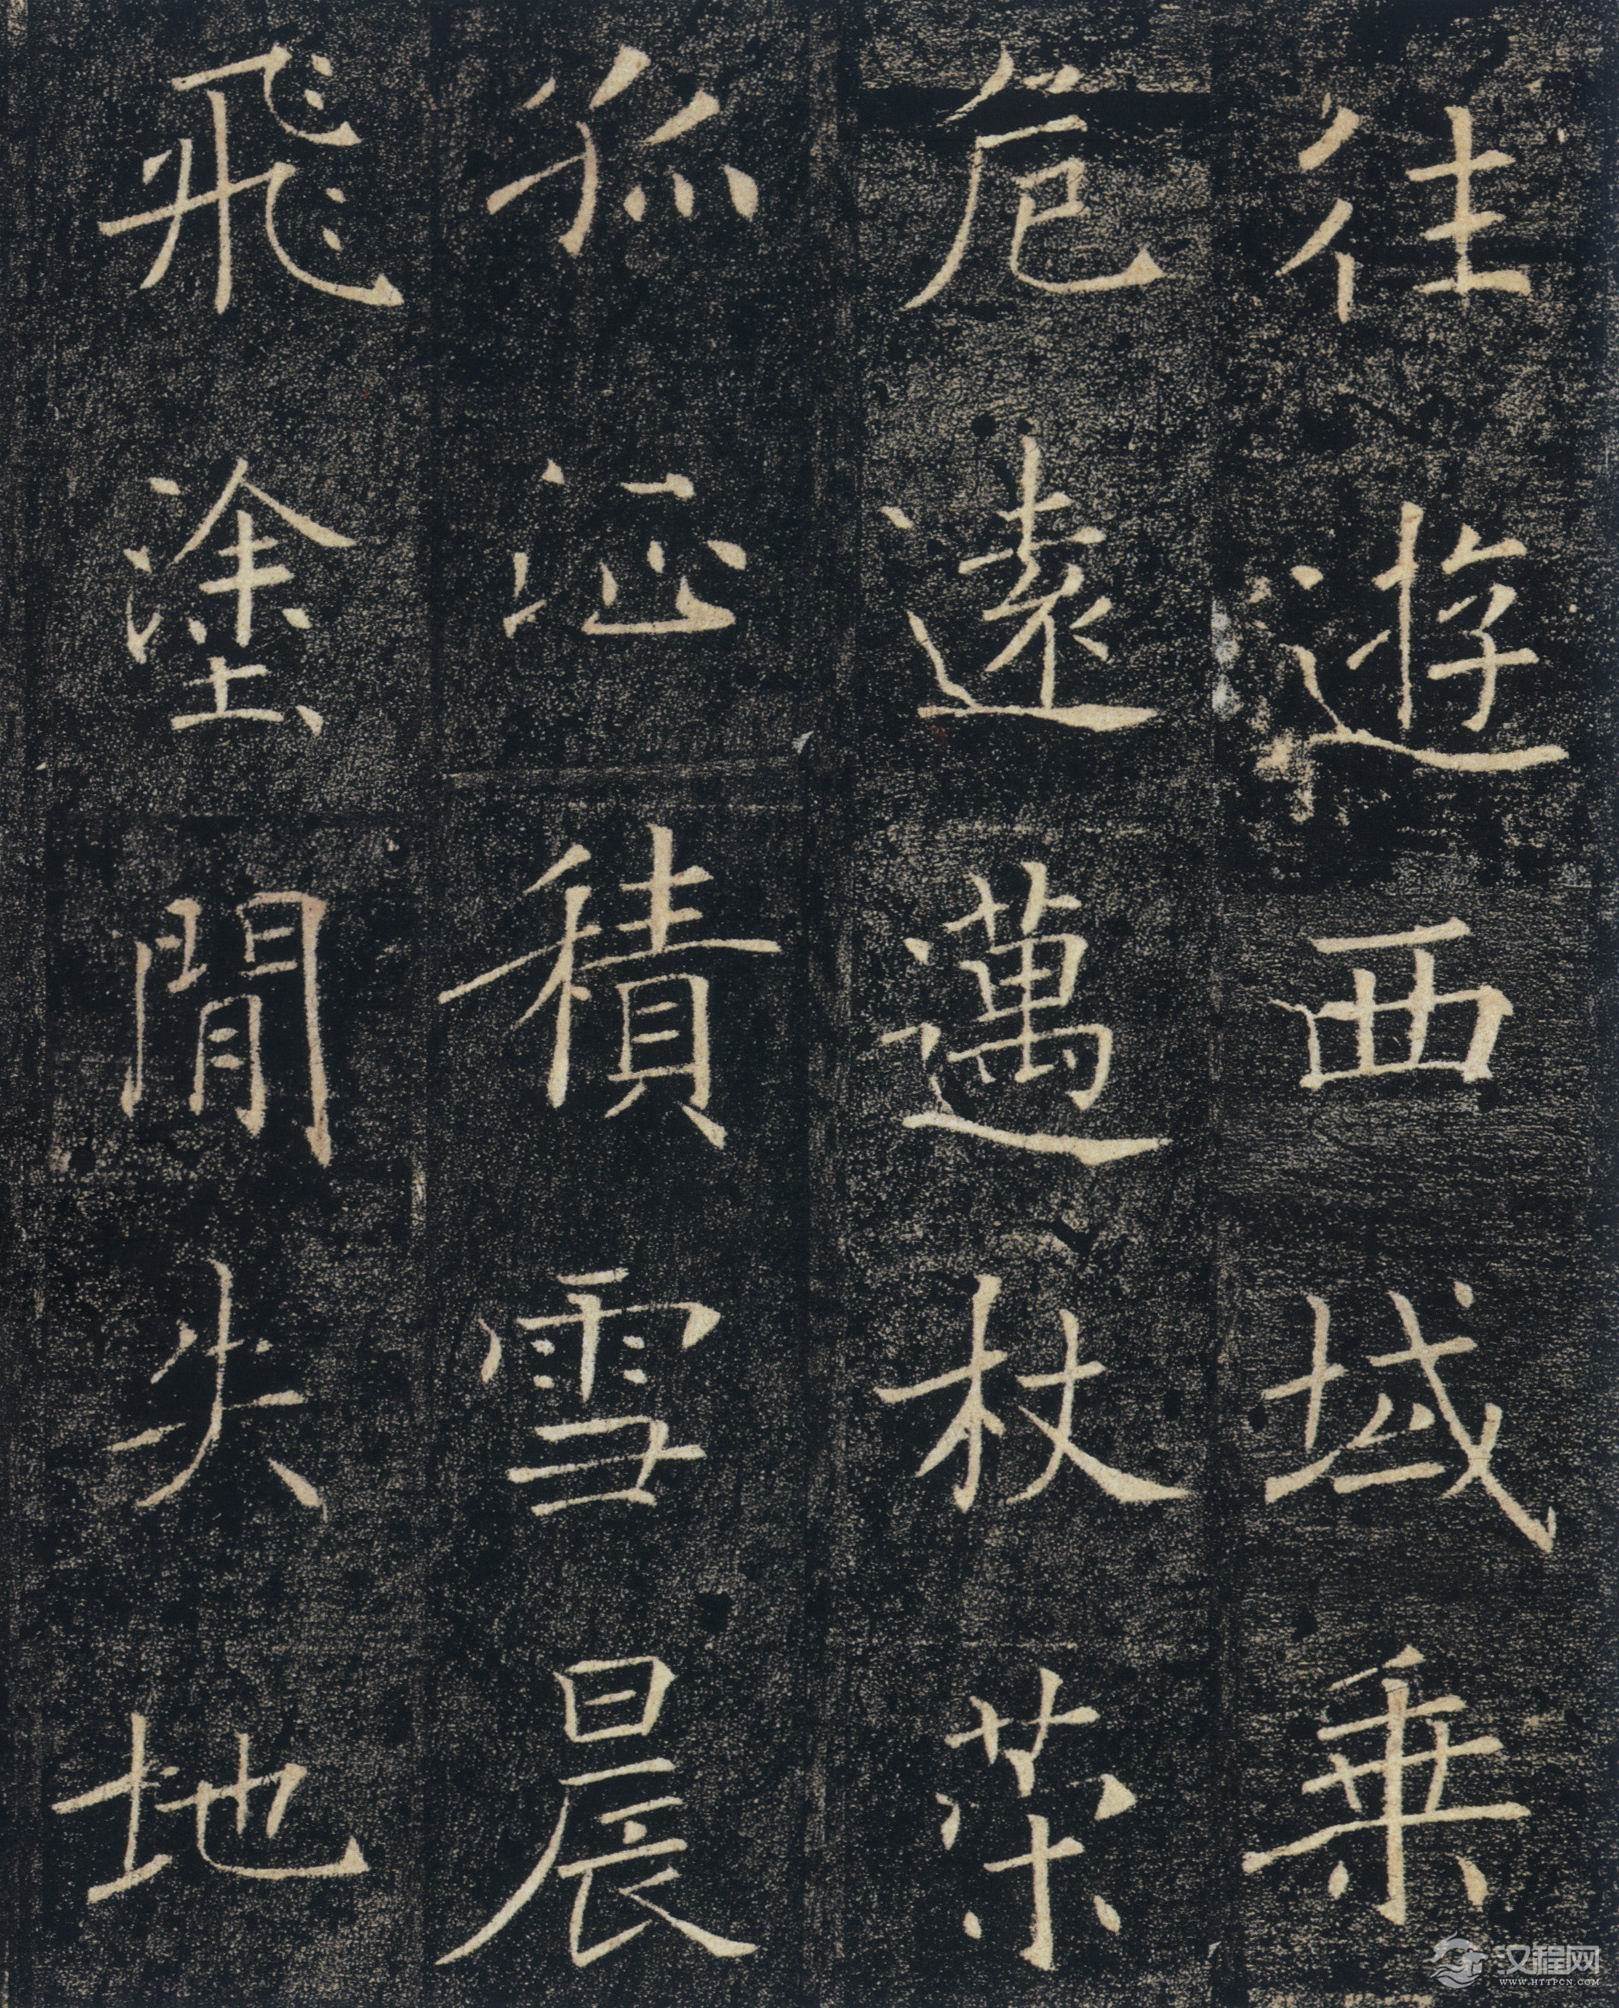 往遊西域乗
危遠邁杖茦
孤征積雪晨
飛塗閒失地
汉程网
WWW.HTTPCN.COM